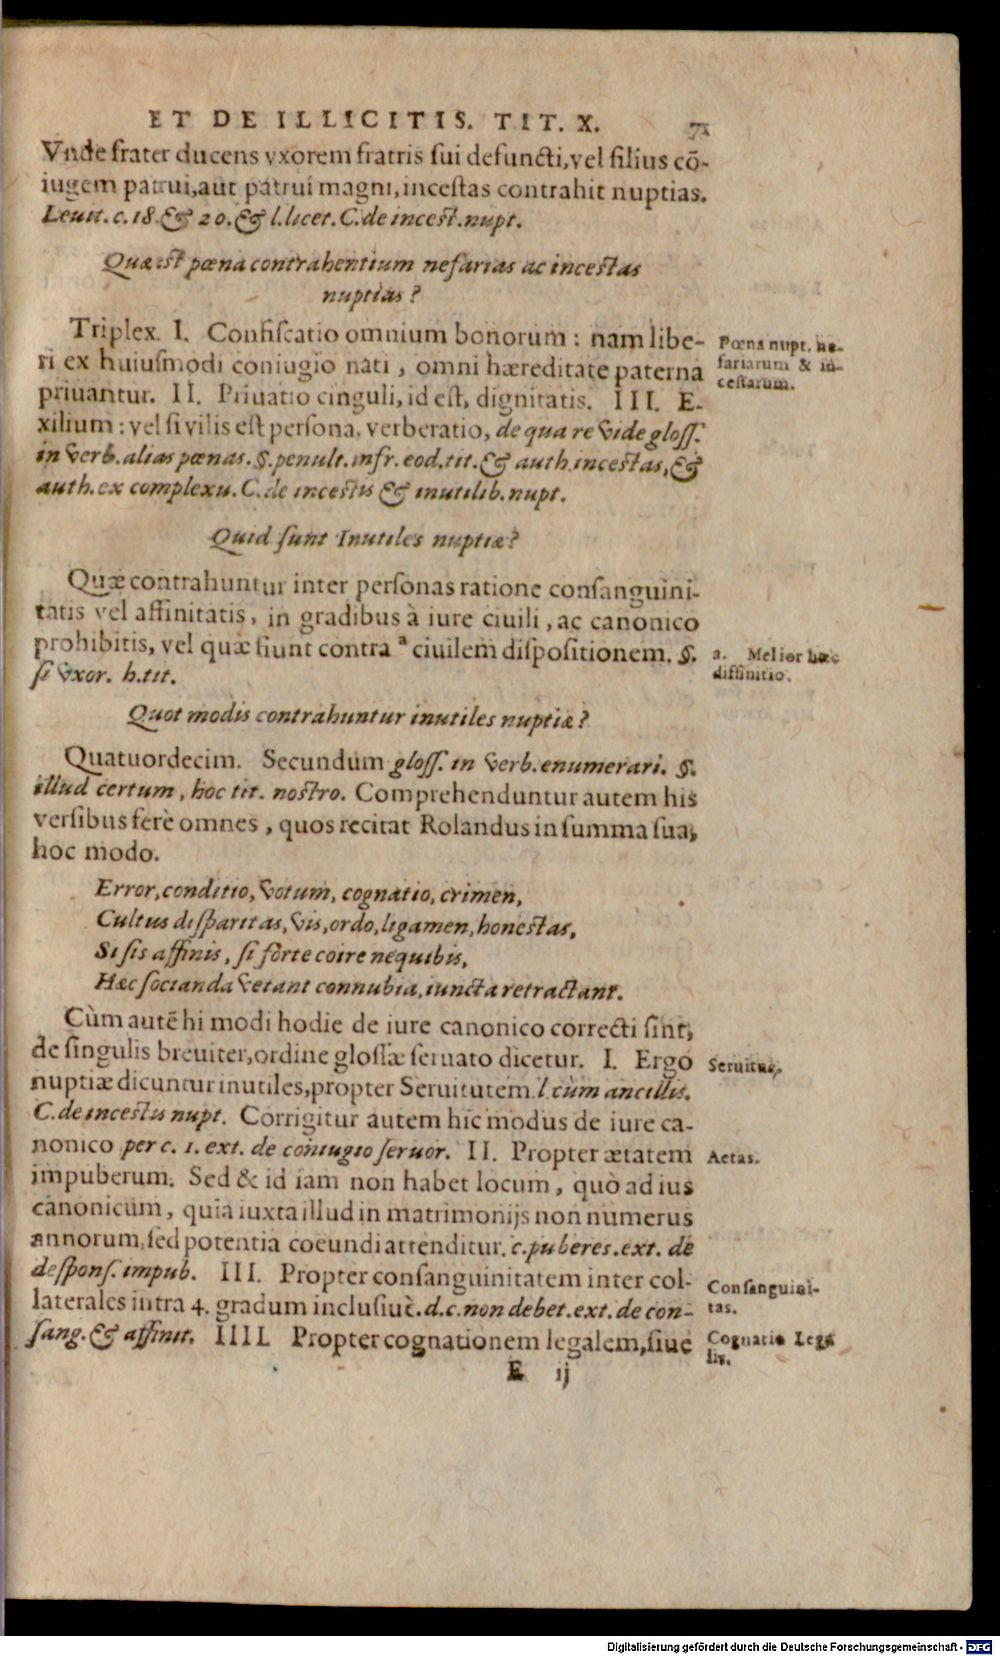 ET DE ILLICITIS. TIT. X. 71
Vnde frater ducens vxorem fratris sui defuncti, vel filius cō-
iugem patrui, aut patrui magni, incestas contrahit nuptias.
Leuit. c. 18. & 20. & l. licet. C. de incest. nupt.
Quæ est pœna contrahentium nefarias ac incestas
nuptias?
Triplex. I. Confiscatio omnium bonorum: nam libe-
ri ex huiusmodi coniugio nati, omni hæreditate paterna
priuantur. II. Priuatio cinguli, id est, dignitatis. III. E-
xilium: vel si vilis est persona, verberatio, de qua re vide gloss.
in verb. alias pœnas. §. penult. infr. eod. tit. & auth. incestas, &
auth. ex complexu. C. de incestis & inutilib. nupt.
Pœna nupt. ne-
fariarum & in-
cestarum.
Quid sunt Inutiles nuptiæ?
Quæ contrahuntur inter personas ratione consanguini-
tatis vel affinitatis, in gradibus à iure ciuili, ac canonico
prohibitis, vel quæ fiunt contra ᵃ ciuilem dispositionem. §.
si vxor. h. tit.
a. Melior hæc
diffinitio.
Quot modis contrahuntur inutiles nuptiæ?
Quatuordecim. Secundum gloss. in verb. enumerari. §.
illud certum, hoc tit. nostro. Comprehenduntur autem his
versibus ferè omnes, quos recitat Rolandus in summa sua,
hoc modo.
Error, conditio, votum, cognatio, crimen,
Cultus disparitas, vis, ordo, ligamen, honestas,
Si sis affinis, si fòrte coire nequibis,
Hæc socianda vetant connubia, iuncta retractant.
Cùm autē hi modi hodie de iure canonico correcti sint,
de singulis breuiter, ordine glossæ seruato dicetur. I. Ergo
nuptiæ dicuntur inutiles, propter Seruitutem l. cùm ancillis.
C. de incestis nupt. Corrigitur autem hic modus de iure ca-
nonico per c. 1. ext. de coniugio seruor. II. Propter ætatem
impuberum. Sed & id iam non habet locum, quò ad ius
canonicum, quia iuxta illud in matrimonijs non numerus
annorum, sed potentia coeundi attenditur. c. puberes. ext. de
despons. impub. III. Propter consanguinitatem inter col-
laterales intra 4. gradum inclusiuè. d. c. non debet. ext. de con-
sang. & affinit. IIII. Propter cognationem legalem, siue
Seruitus.
Aetas.
Consanguini-
tas.
Cognatio Lega
lis.
E ij
Digitalisierung gefördert durch die Deutsche Forschungsgemeinschaft - DFG